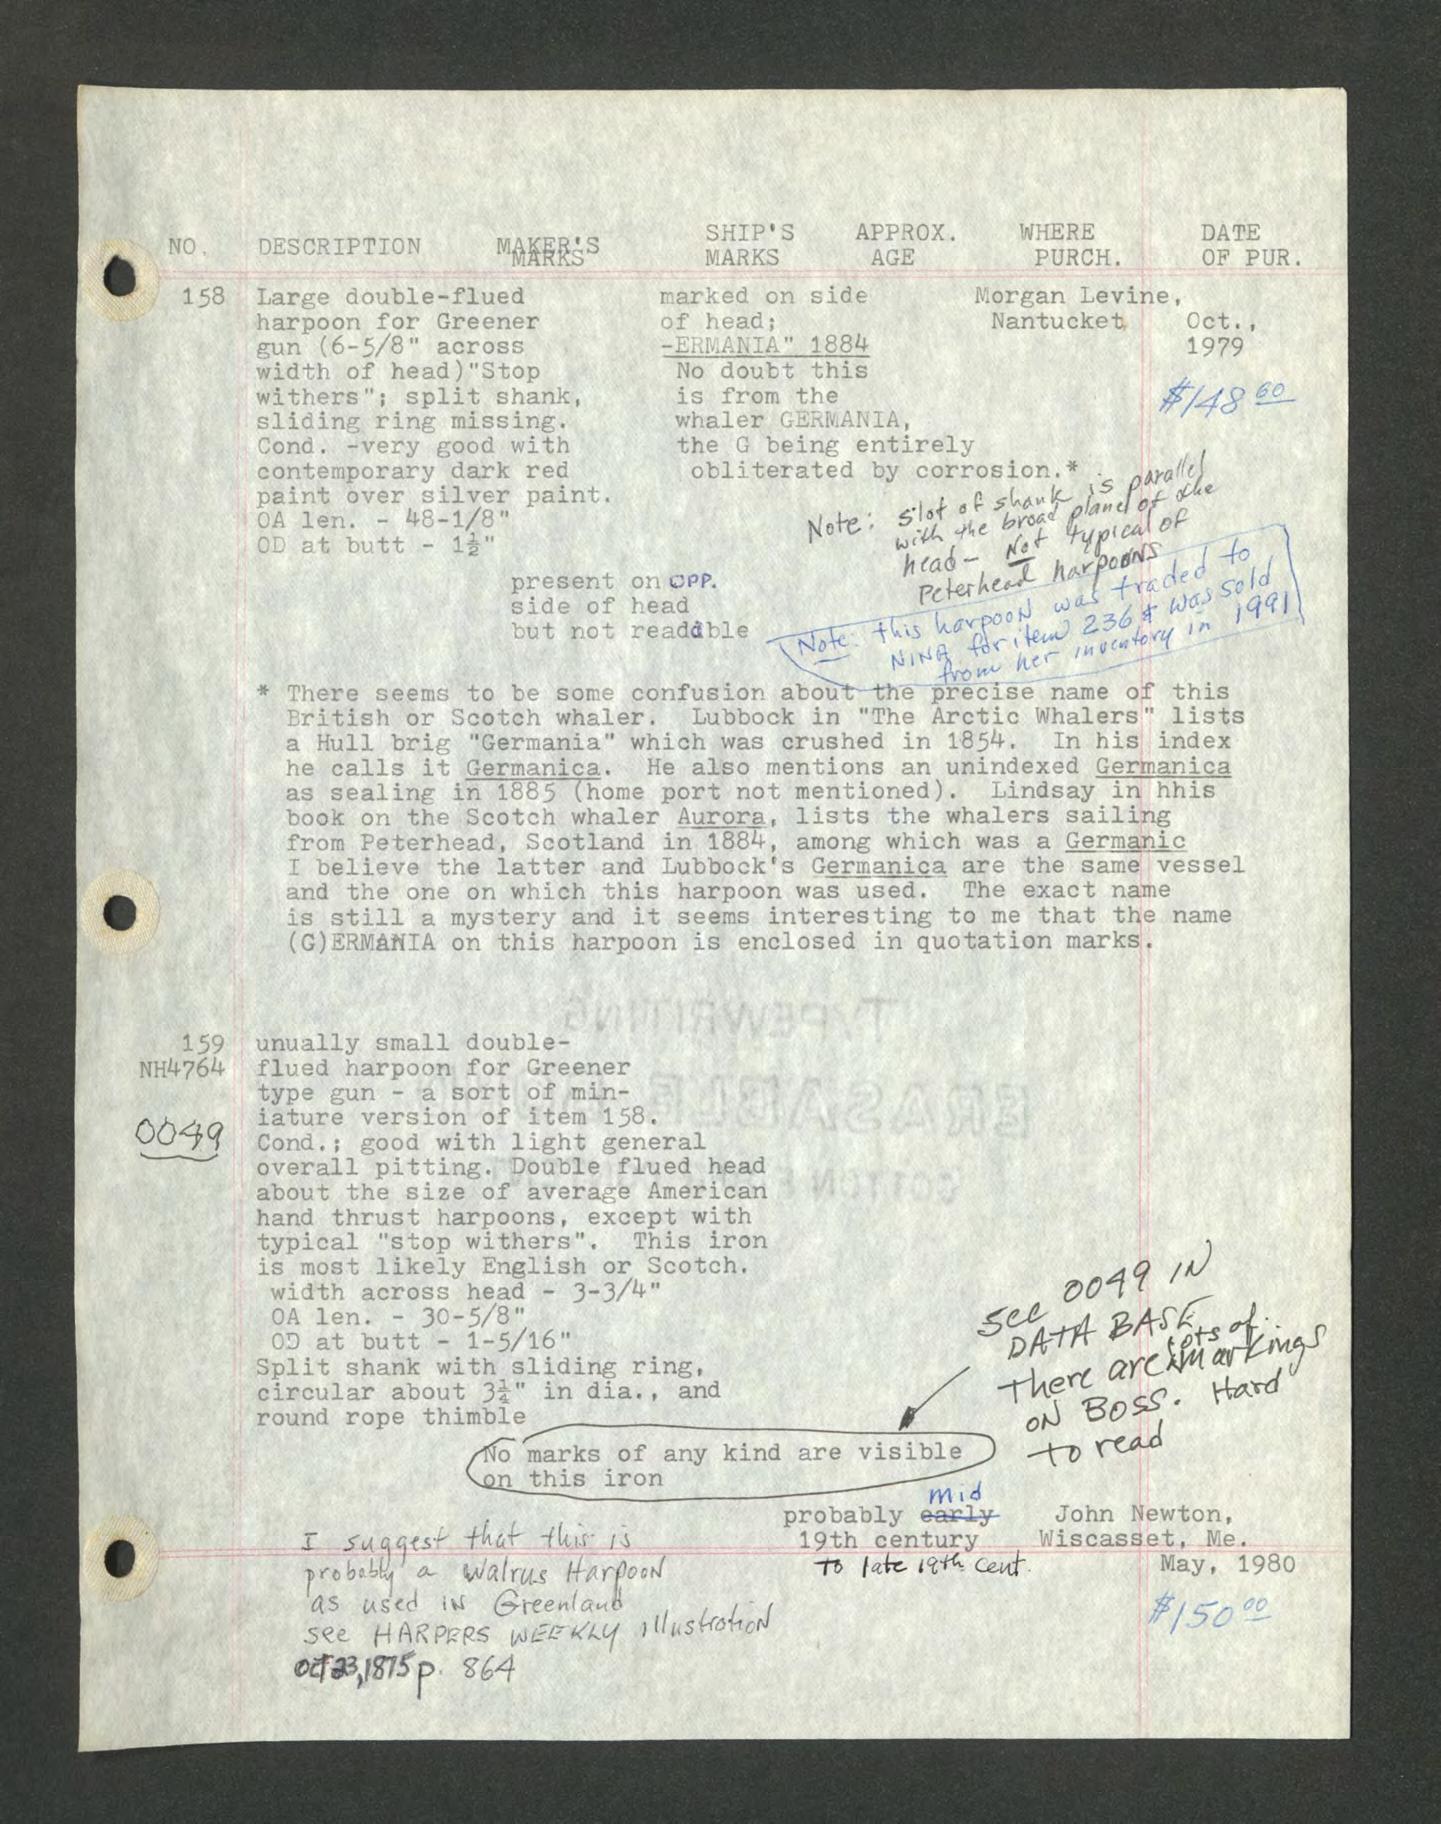 NO. DESCRIPTION MAKER'S MARKS SHIP'S MARKS APPROX. AGE WHERE PURCH. DATE OF PUR.
158 Large double-flued
harpoon for Greener
gun (6-5/8" across
width of head)"Stop
withers"; split shank,
sliding ring missing.
Cond. -very good with
contemporary dark red
paint over silver paint.
OA len. - 48-1/8"
OD at butt - 1½"
present on OPP.
side of head
but not readable
marked on side
of head;
-ERMANIA" 1884
No doubt this
is from the
whaler GERMANIA,
the G being entirely
obliterated by corrosion.*
Morgan Levine,
Nantucket
Oct.,
1979
$148 60
Note: slot of shank is parallel
with the broad plane of the
head - Not typical of
Peterhead harpoons
Note: this harpoon was traded to
NINA for item 236 & was sold
from her inventory in 1991
* There seems to be some confusion about the precise name of this
British or Scotch whaler. Lubbock in "The Arctic Whalers" lists
a Hull brig "Germania" which was crushed in 1854. In his index
he calls it Germanica. He also mentions an unindexed Germanica
as sealing in 1885 (home port not mentioned). Lindsay in hhis
book on the Scotch whaler Aurora, lists the whalers sailing
from Peterhead, Scotland in 1884, among which was a Germanic
I believe the latter and Lubbock's Germanica are the same vessel
and the one on which this harpoon was used. The exact name
is still a mystery and it seems interesting to me that the name
(G)ERMANIA on this harpoon is enclosed in quotation marks.
TYPEWRITING
ERASABLE
COTTON
159 unually small double-
NH4764 flued harpoon for Greener
type gun - a sort of min-
iature version of item 158.
0049
Cond.; good with light general
overall pitting. Double flued head
about the size of average American
hand thrust harpoons, except with
typical "stop withers". This iron
is most likely English or Scotch.
width across head - 3-3/4"
OA len. - 30-5/8"
OD at butt - 1-5/16"
Split shank with sliding ring,
circular about 3¼" in dia., and
round rope thimble
See 0049 IN
DATA BASE
There are lots of markings
ON BOSS. Hard
to read
No marks of any kind are visible
on this iron
mid
probably early
19th century
to late 19th cent.
John Newton,
Wiscasset, Me.
May, 1980
$150 00
I suggest that this is
probably a Walrus Harpoon
as used in Greenland
see HARPERS WEEKLY illustration
OCT 23, 1875 p. 864